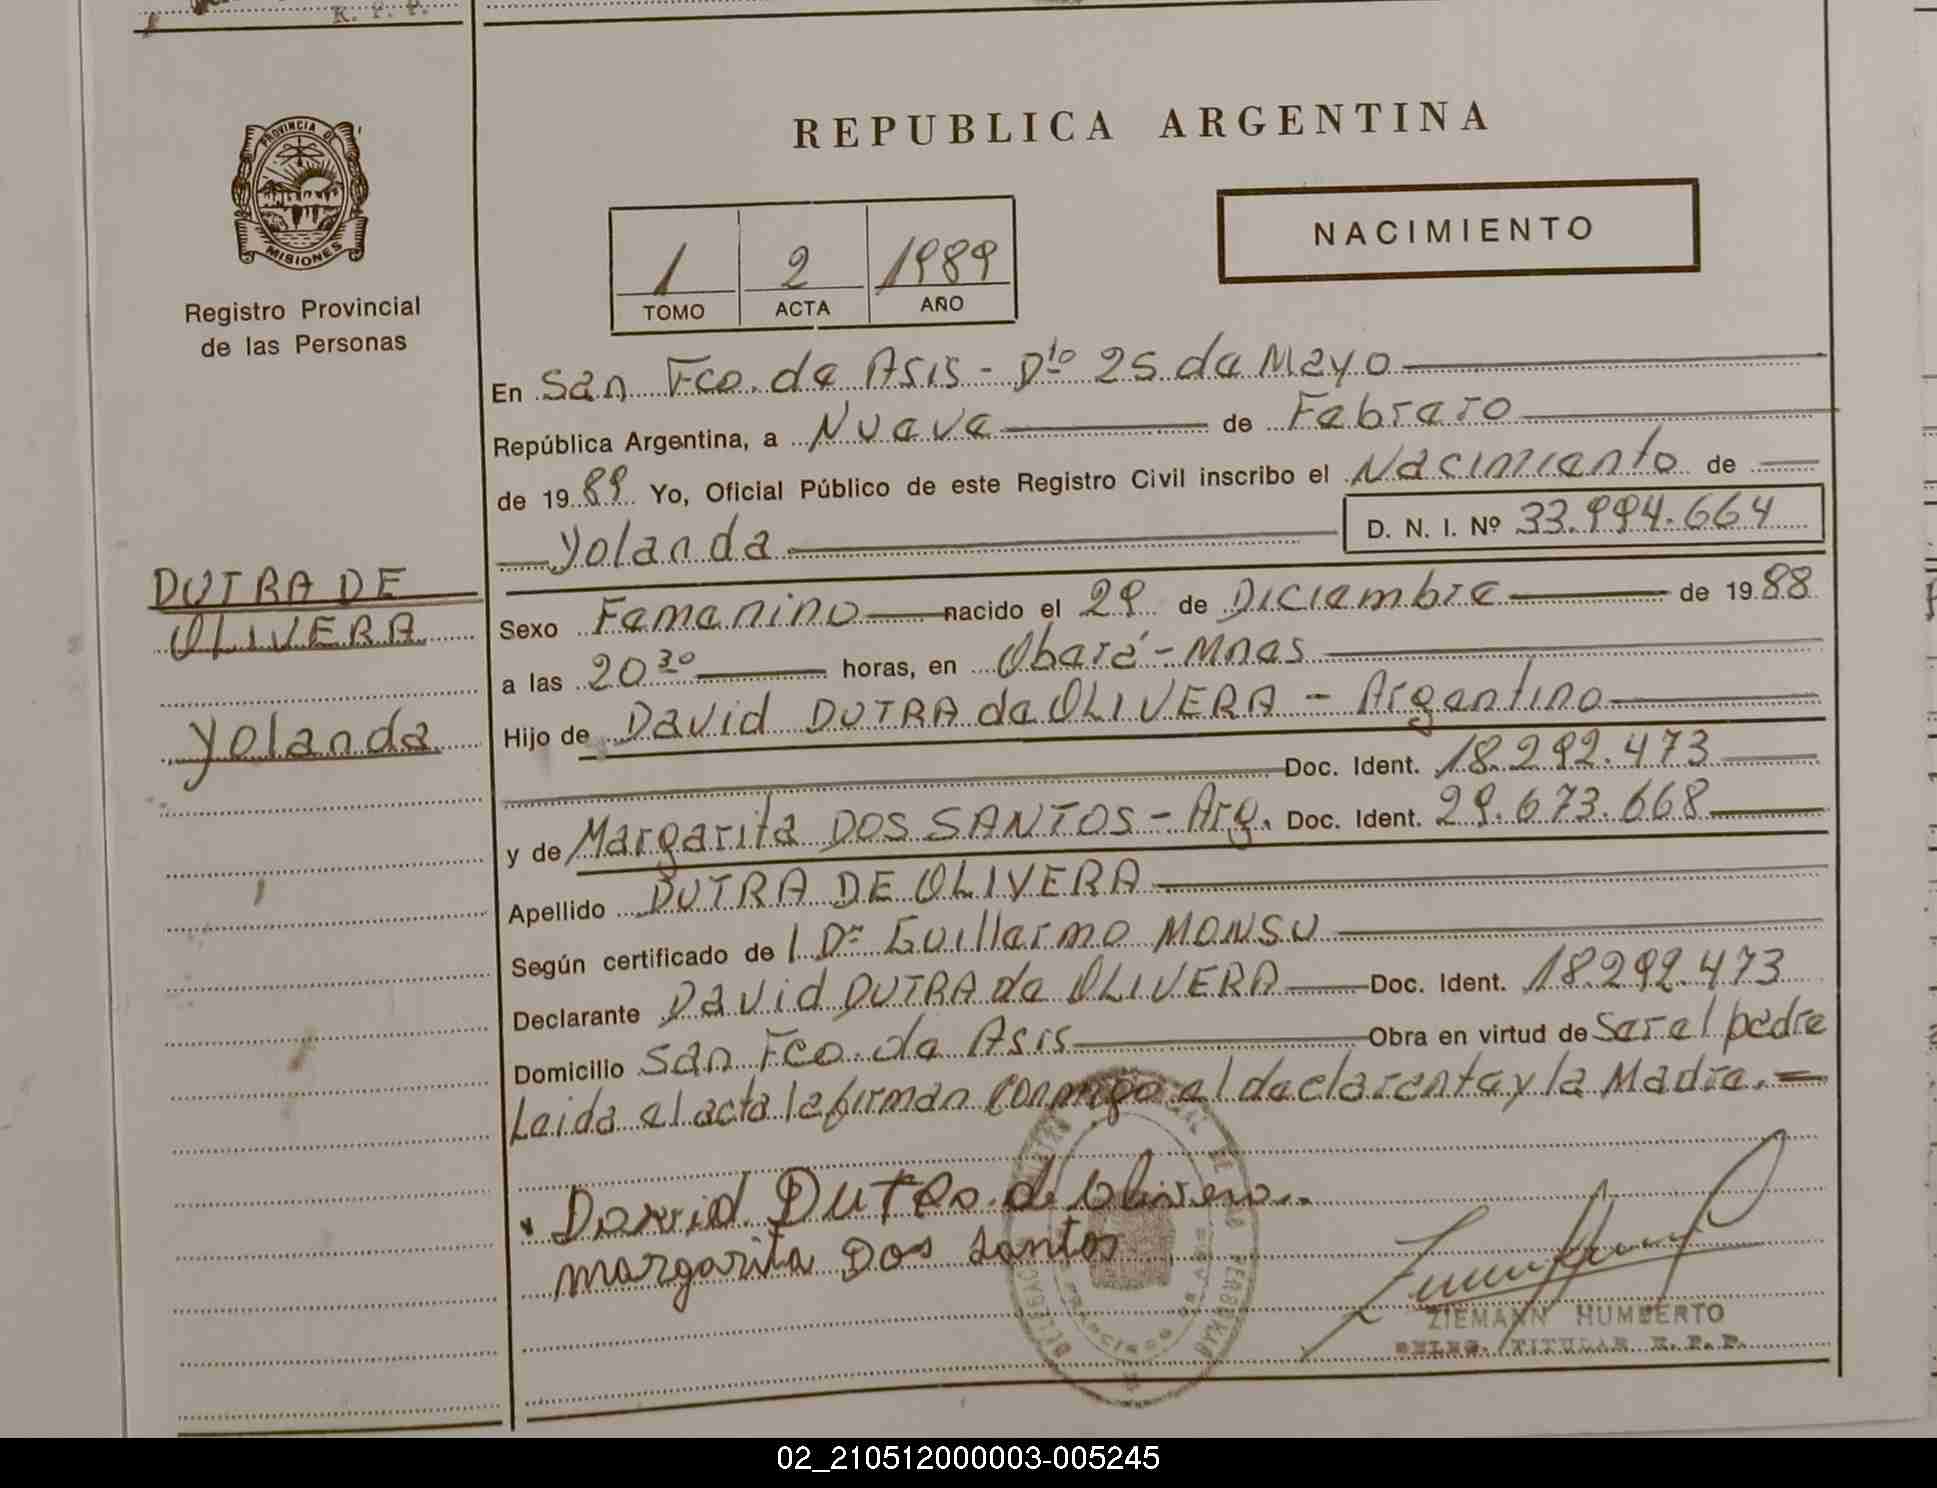 R. P. P.
PROVINCIA DE
MISIONES
Registro Provincial
de las Personas
DUTRA DE
OLIVERA
Yolanda
REPUBLICA ARGENTINA
NACIMIENTO
1 2 1989
TOMO ACTA AÑO
En San Fco. de Asis - Dto 25 de Mayo
República Argentina, a Nueve de Febrero
de 1989 Yo, Oficial Público de este Registro Civil inscribo el Nacimiento de
Yolanda D. N. I. Nº 33.994.664
Sexo Femenino nacido el 29 de Diciembre de 1988
a las 20 30 horas, en Oberá - Mnes
Hijo de David DUTRA de OLIVERA - Argentino
Doc. Ident. 18.292.473
y de Margarita DOS SANTOS - Arg. Doc. Ident. 29.673.668
Apellido DUTRA DE OLIVERA
Según certificado de l Dr Guillermo MONSU
Declarante David DUTRA de OLIVERA Doc. Ident. 18.292.473
Domicilio San Fco. de Asis Obra en virtud de Ser el padre
Leida el acta la firman conmigo el declarente y la Madre. =
David Dutra de Olivera
margarita Dos santos
ZIEMANN HUMBERTO
DELEG. TITULAR R. P. P.
02_210512000003-005245